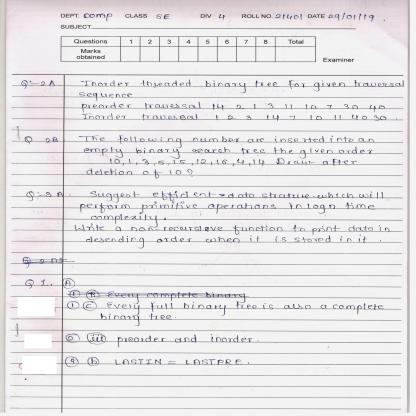 DEPT. Comp CLASS SE DIV 4 ROLL NO. 21401 DATE 29/01/19.
SUBJECT
Questions 1 2 3 4 5 6 7 8 Total
Marks obtained
Examiner
Q:-2A Inorder threaded binary tree for given traversal
sequence
preorder traversal 14 2 1 3 11 10 7 30 40
Inorder traversal 1 2 3 14 7 10 11 40 30.
Q 2B The following number are inserted into an
empty binary search tree the given order
10,1,3,5,15,12,16,4,14 Draw after
deletion of 10?
Q:-3 A. Suggest efficient data strature which will
perform primitive operations in logn time
complexity.
Write a non recursive function to print data in
desending order when it is stored in it.
Q 1. A
1 B Every complete binary
1 C Every full binary tree is also a complete
binary tree.
iii preorder and inorder.
b LASTIN = LASTPRE.